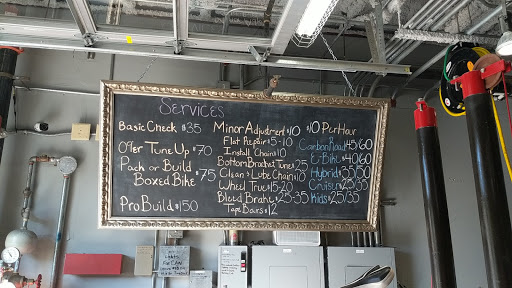 Services
Basic Check $35
Offer Tune Up $70
Pack or Build
Boxed Bike $75
Pro Build $150
Minor Adjustment $10
Flat Repair $5-10
Install Chain $10
Bottom Bracket Tune $25
Clean & Lube Chain $10
Wheel True $15-20
Bleed Brake $25-35
Tape Bars $12
$10 Per Hour
Carbon Road $45/60
E-Bike $40/60
Hybrid $35/50
Cruiser $25/35
Kids $25/35